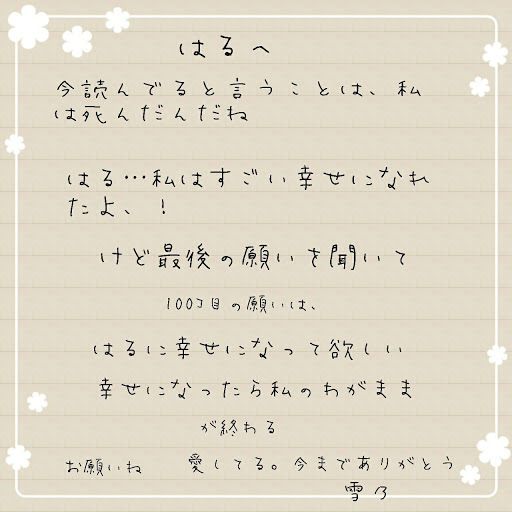 はるへ
今読んでると言うことは、私
は死んだんだね
はる…私はすごい幸せになれ
たよ、!
けど最後の願いを聞いて
100コ目の願いは、
はるに幸せになって欲しい
幸せになったら私のわがまま
が終わる
お願いね 愛してる。今までありがとう
雪乃